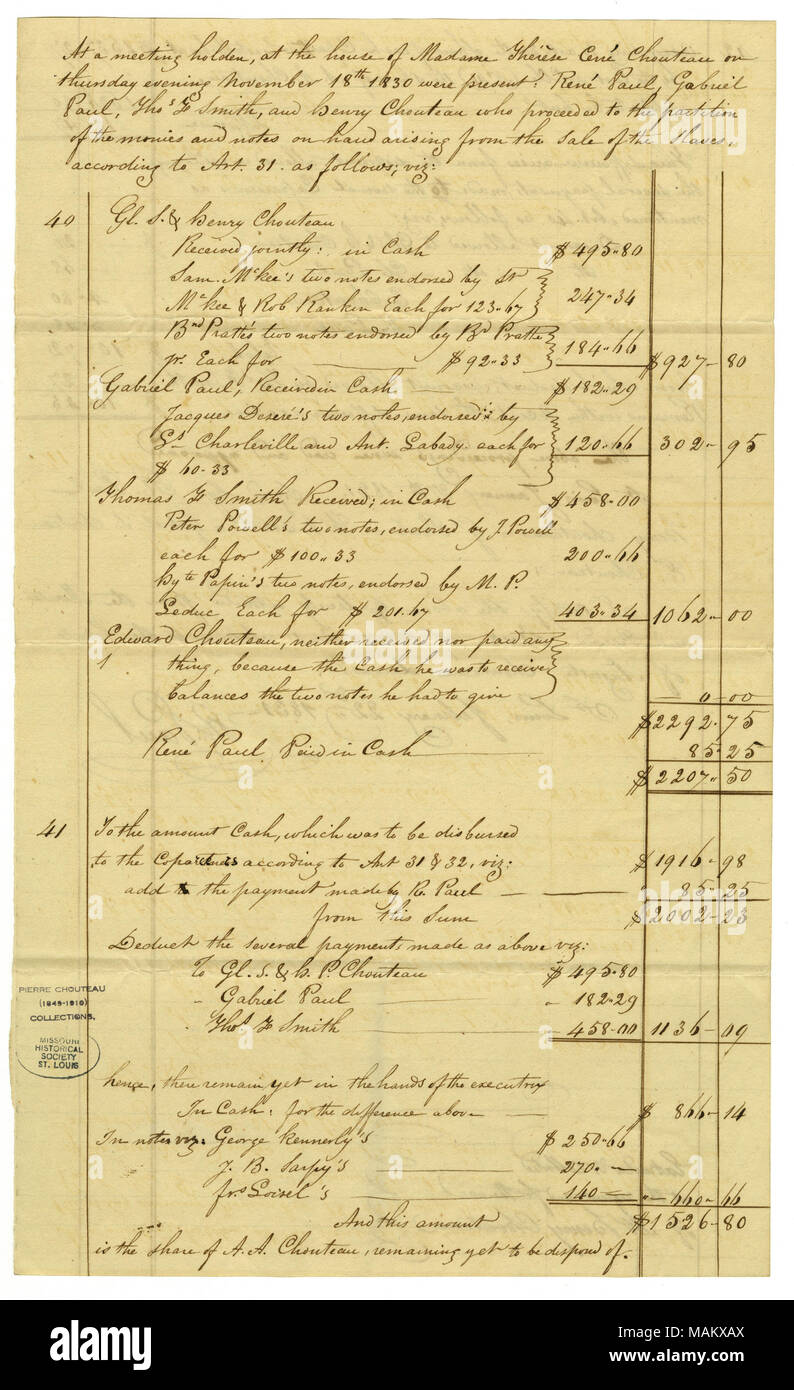 At a meeting holden, at the house of Madame Thérèse Cerré Chouteau on
thursday evening November 18th 1830 were present: René Paul, Gabriel
Paul, Thos F Smith, and henry Chouteau who proceeded to the partition
of the monies and notes on hand arising from the sale of the slaves.
according to Art. 31. as follows; viz:
40 Gl. S. & henry Chouteau
Received jointly: in Cash $495..80
Sam. McKee's two notes endorsed by
McKee & Rob Rankin Each for 123..67 247..34
Bnd Pratte's two notes endorsed by Bd Pratte
jr. Each for $92..33 184..66 $927-80
Gabriel Paul, Received in Cash $182..29
Jacques Deseré's two notes, endorsed by
Charleville and Ant. Labady each for 120..66 302-95
$60-33
Thomas F Smith Received; in Cash $458-00
Peter Powell's two notes, endorsed by J. Powell
each for $100..33 200..66
hyte Papin's two notes, endorsed by M. P.
Leduc Each for $201.67 403-34 1062-00
Edward Chouteau, neither received nor paid any
1 thing, because the Cash he was to receive
balances the two notes he had to give -0-00
$2292-75
René Paul Paid in Cash 85-25
$2207..50
41 To the amount Cash, which was to be disbursed
to the Copartners according to Art 31 & 32, viz: $1916-98
add to the payment made by R. Paul 85-25
from this Sum $2002-23
Deduct the several payment made as above viz:
To Gl. S. & h. P. Chouteau $495.80
- Gabriel Paul 182-29
Thos F Smith 458-00 1136-09
hence, there remain yet in the hands of the executrix
In Cash: for the difference above $866-14
In notes viz: George Kennerly's $250-66
J. B. Sarpy's 270.-
frs Loisel's 140- 660-66
And this amount $1526-80
is the share of A. A. Chouteau, remaining yet to be disposed of.
PIERRE CHOUTEAU
(1849-1910)
COLLECTIONS.
MISSOURI
HISTORICAL
SOCIETY
ST. LOUIS
alamy
Image ID: MAKXAX
www.alamy.com